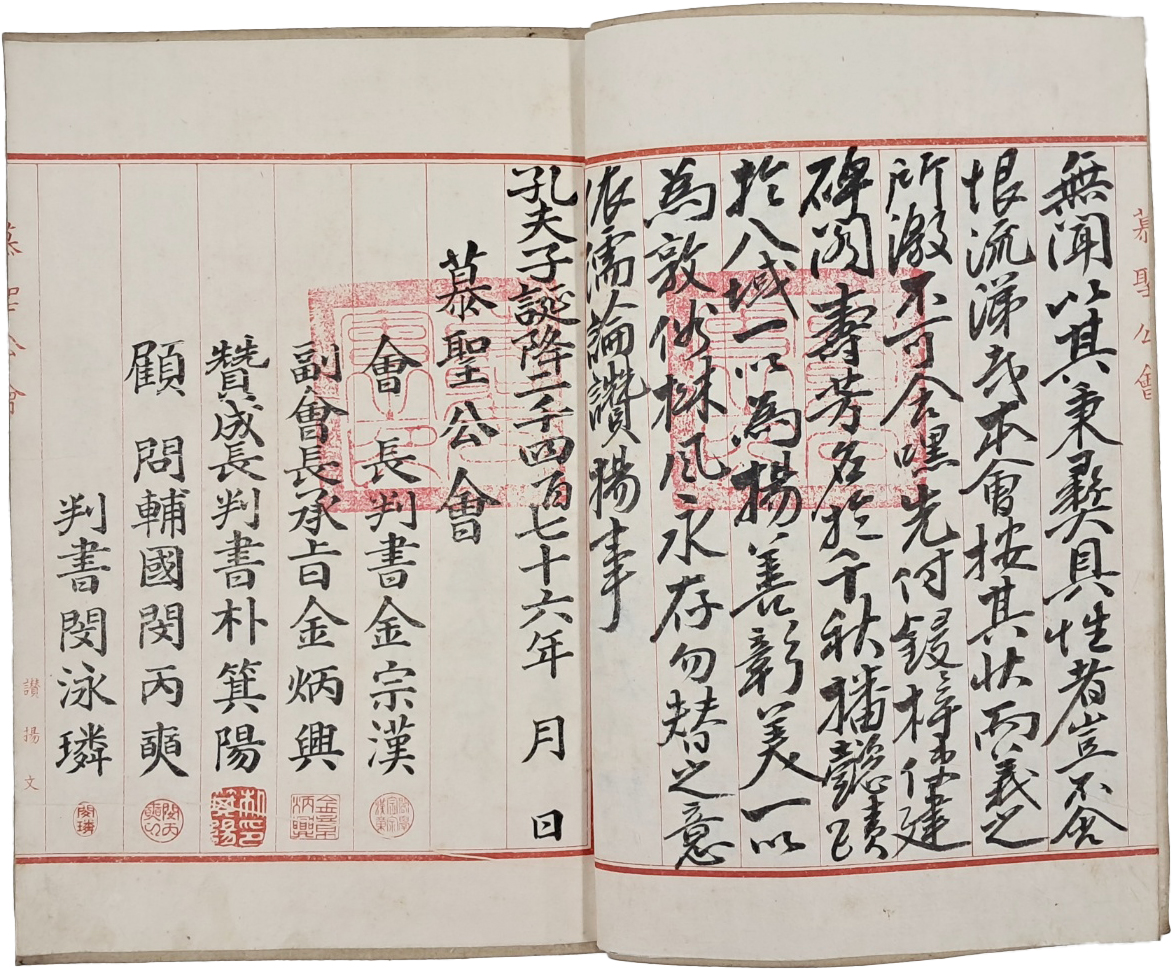 慕聖公會
無聞以其秉彛具性者豈不含
恨流涕哉本會按其狀而義之
所激不可含嘿先付鋟梓俾建
碑閣壽芳名於千秋播懿蹟
於八域一以為揚善彰美一以
為敦俗樹風永存勿替之意
依儒論讚揚事
孔夫子誕降二千四百七十六年 月 日
慕聖公會
會長判書金宗漢
副會長承旨金炳興
贊成長判書朴箕陽
顧問輔國閔丙奭
判書閔泳璘
慕聖公會 讚揚文